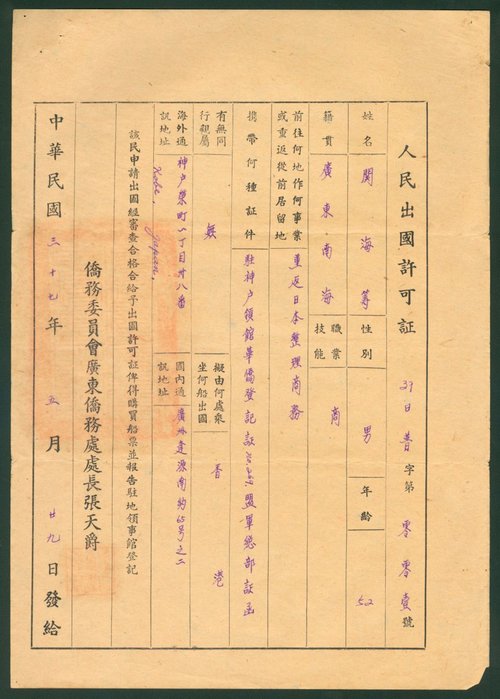 人民出國許可証
37日普字第零零壹號
姓名 關海籌 性別 男 年齡 52
籍貫 廣東南海 職業技能 商
前往何地作何事業或重返從前居留地 重返日本整理商務
攜帶何種証件 駐神戶領館華僑登記証 盟軍總部証函
有無同行親屬 無 擬由何處乘坐何船出國 香港
海外通訊地址 神戶榮町一丁目廿八番 Kobe, Japan. 國內通訊地址 廣州逢源南約65号之二
該民申請出國經審查合格合給予出國許可証俾得購買船票並報告駐地領事館登記
僑務委員會廣東僑務處處長張天爵
中華民國三十七年五月廿九日發給